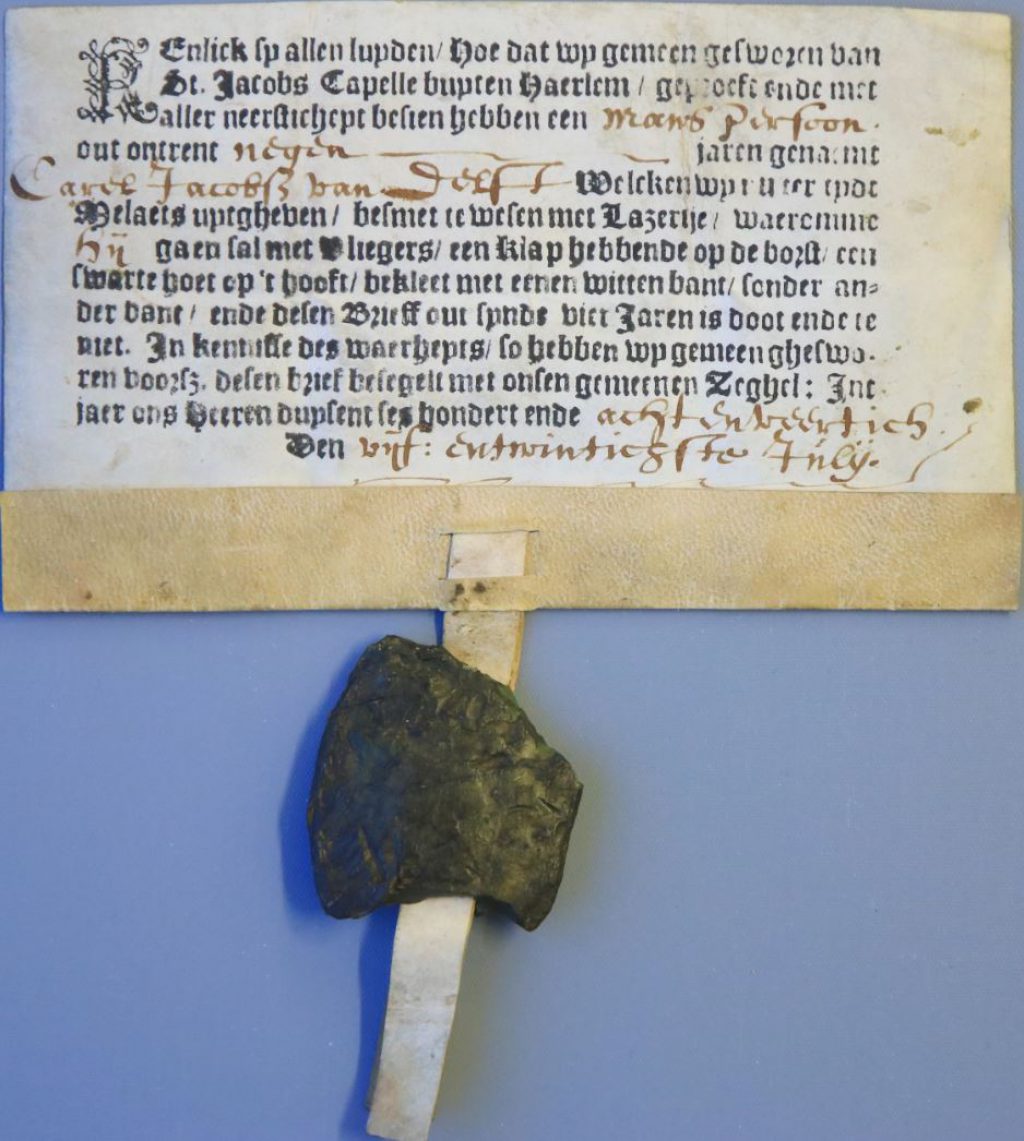 KEnlick sy allen luyden/ Hoe dat wy gemeen gesworen van
St. Jacobs Capelle buyten Haerlem / geproeft ende met
aller neerstichept besien hebben een Mans Persoon.
out ontrent negen jaren genaemt
Carel Jacobsz van Delft Welcken wy nu ter tydt
Melaets uytgheven / besmet te wesen met Lazerije / waeromme
hij gaen sal met Vliegers/ een Klap hebbende op de borst/ een
swarte hoet op 't hooft/ bekleet met eenen witten bant/ sonder an-
der bant / ende desen Brieff out synde vier Jaren is doot ende te
niet. In kennisse des waerheyts/ so hebben wy gemeen gheswo-
ren voorsz. desen brief besegelt met onsen gemeenen Zeghel: Int
jaer ons Heeren duysent ses hondert ende achtenveertich.
Den vijf: entwintichste Julij.